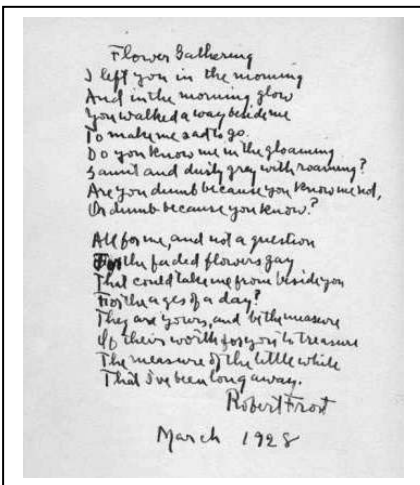 Flower Gathering
I left you in the morning
And in the morning glow
You walked a way beside me
To make me sad to go.
Do you know me in the gloaming
Gaunt and dusty grey with roaming?
Are you dumb because you know me not,
Or dumb because you know?
All for me, and not a question
For the faded flowers gay
That could take me from beside you
For the ages of a day?
They are yours, and be the measure
Of their worth for you to treasure
The measure of the little while
That I've been long away.
Robert Frost
March 1928